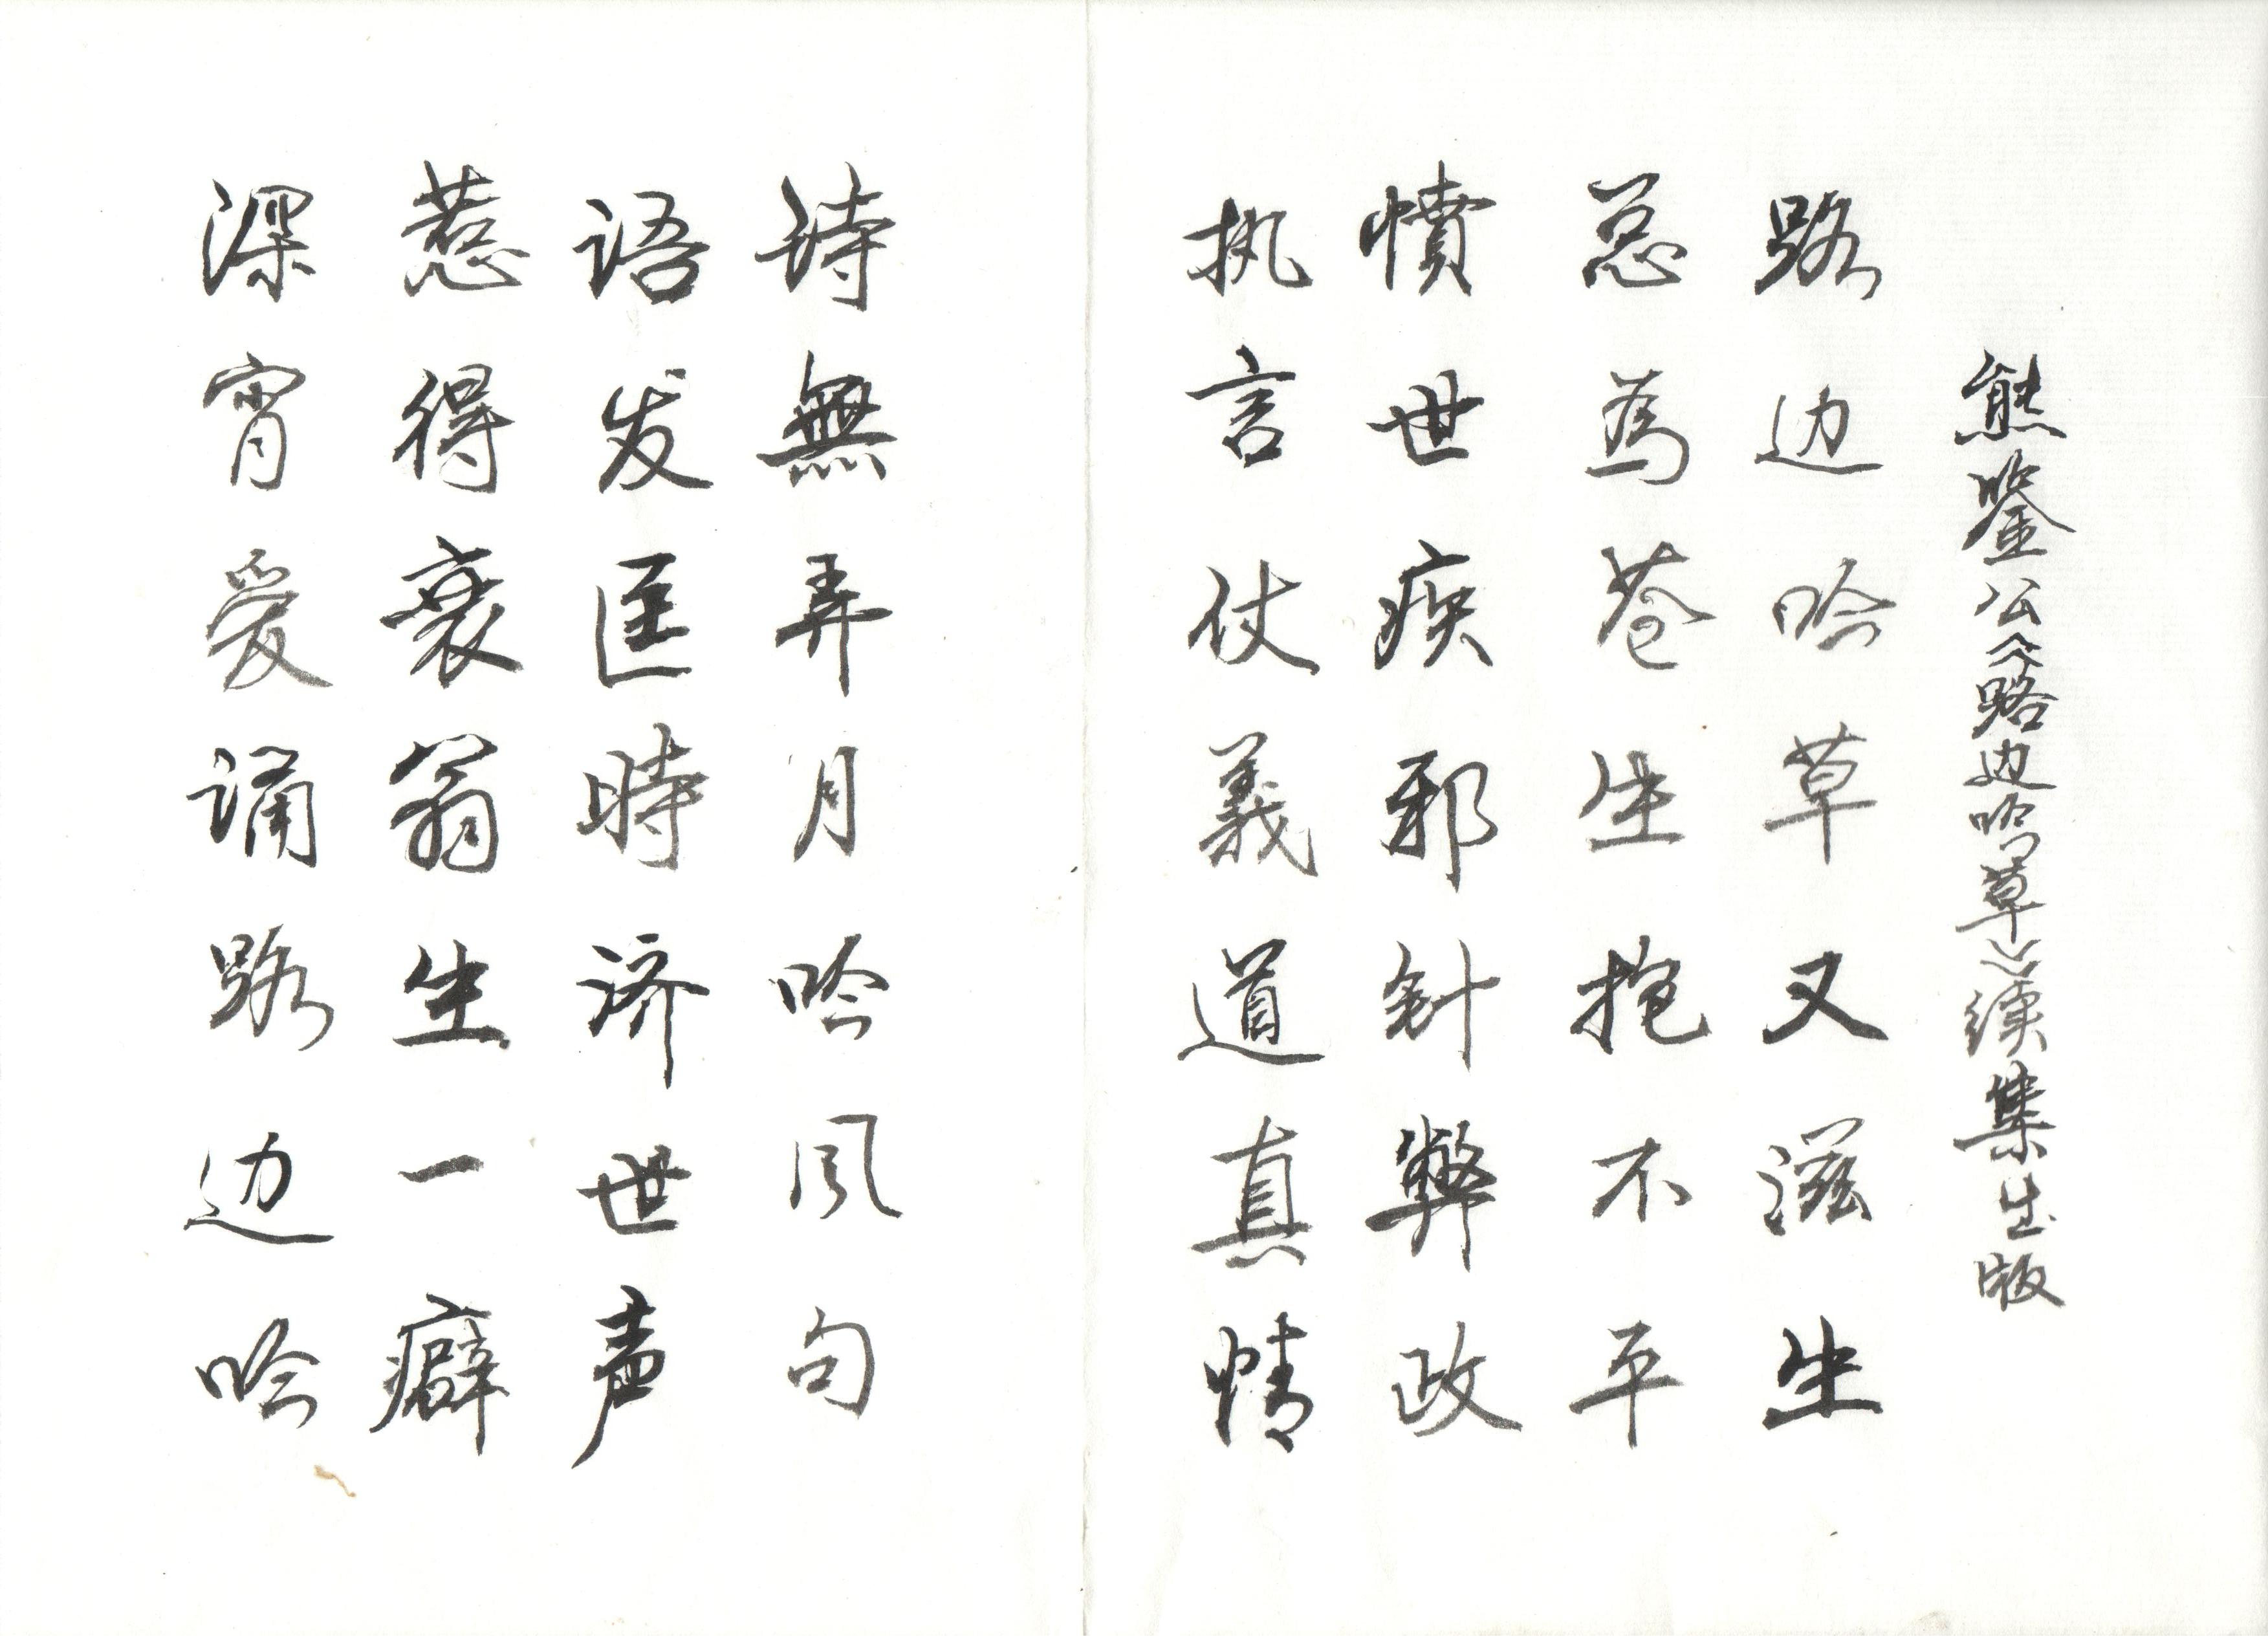 熊鉴公《路边吟草》续集出版
路边吟草又滋生
总为苍生抱不平
愤世疾邪针弊政
执言仗義道真情
诗無弄月吟风句
语发匡時济世声
惹得衰翁生一癖
深宵爱诵路边吟